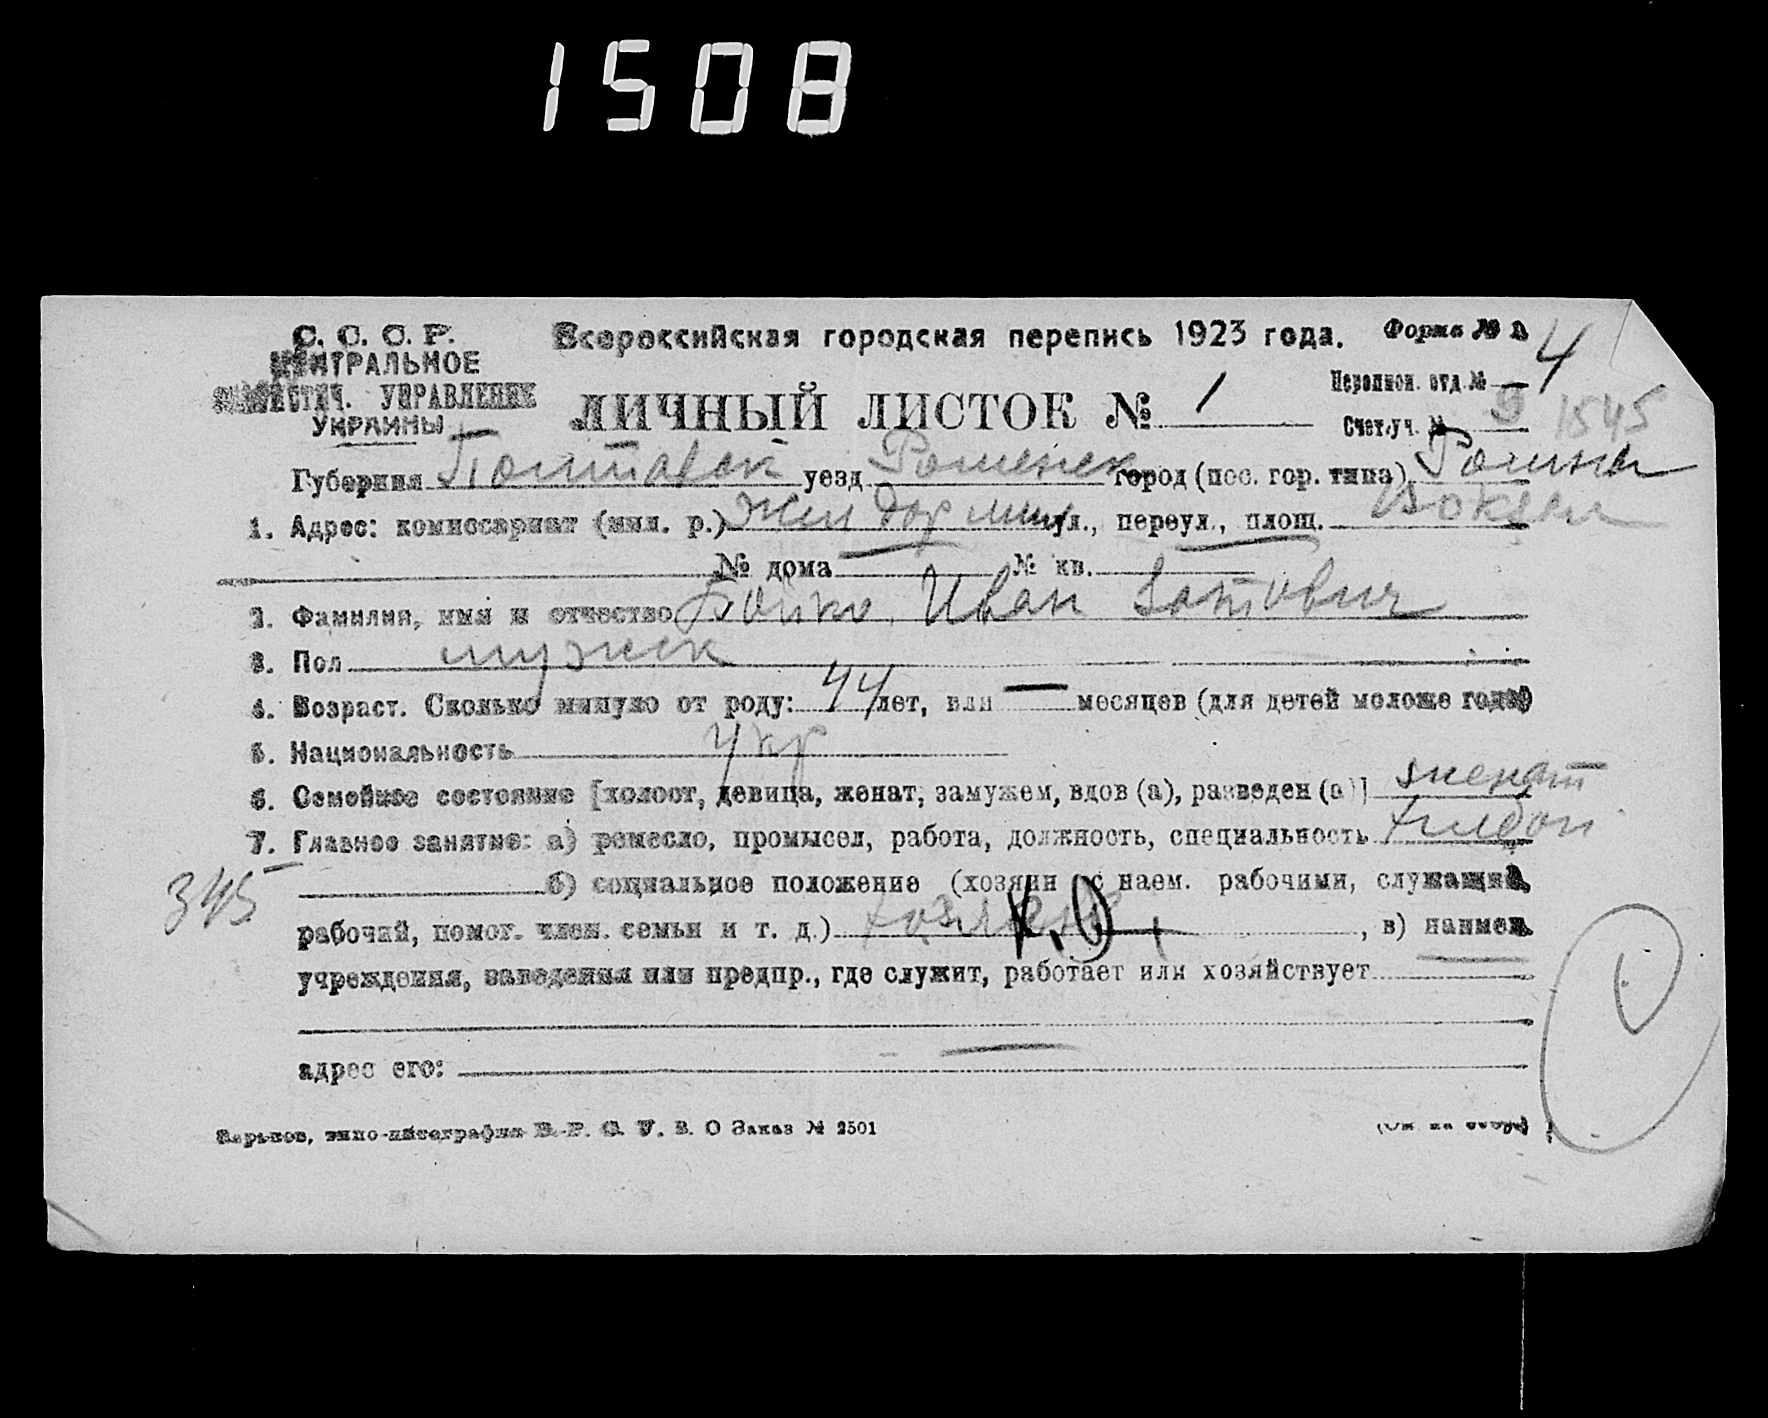 1508
С. С. С. Р. Всероссийская городская перепись 1923 года. Форма № 2
ЦЕНТРАЛЬНОЕ
СТАТИСТИЧ. УПРАВЛЕНИЕ
УКРАИНЫ
ЛИЧНЫЙ ЛИСТОК № 1
Переписн. отд. № 4
Счет. уч. № 9 1545
Губерния Полтавск уезд Роменск город (пос. гор. типа) Ромны
1. Адрес: комиссариат (мил. р.) Жел дор мил ул., переул., площ. Вокзал
№ дома № кв.
2. Фамилия, имя и отчество Бойко Иван
3. Пол мужск
4. Возраст. Сколько минуло от роду: 44 лет, или — месяцев (для детей моложе года)
5. Национальность Укр
6. Семейное состояние [холост, девица, женат, замужем, вдов (а), разведен (а)] женат
7. Главное занятие: а) ремесло, промысел, работа, должность, специальность хлебоп
345 — б) социальное положение (хозяин с наем. рабочими, служащий,
рабочий, помог. член. семьи и т. д.) хозяин К.О, в) наимен.
учреждения, заведения или предпр., где служит, работает или хозяйствует
адрес его: —
Харьков, типо-литография В. Р. С. У. В. О Заказ № 2501 (См. на обор.)